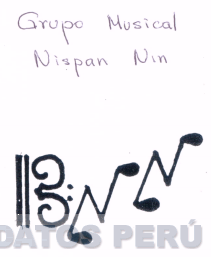 Grupo Musical
Nispan Nin
DATOS PERÚ